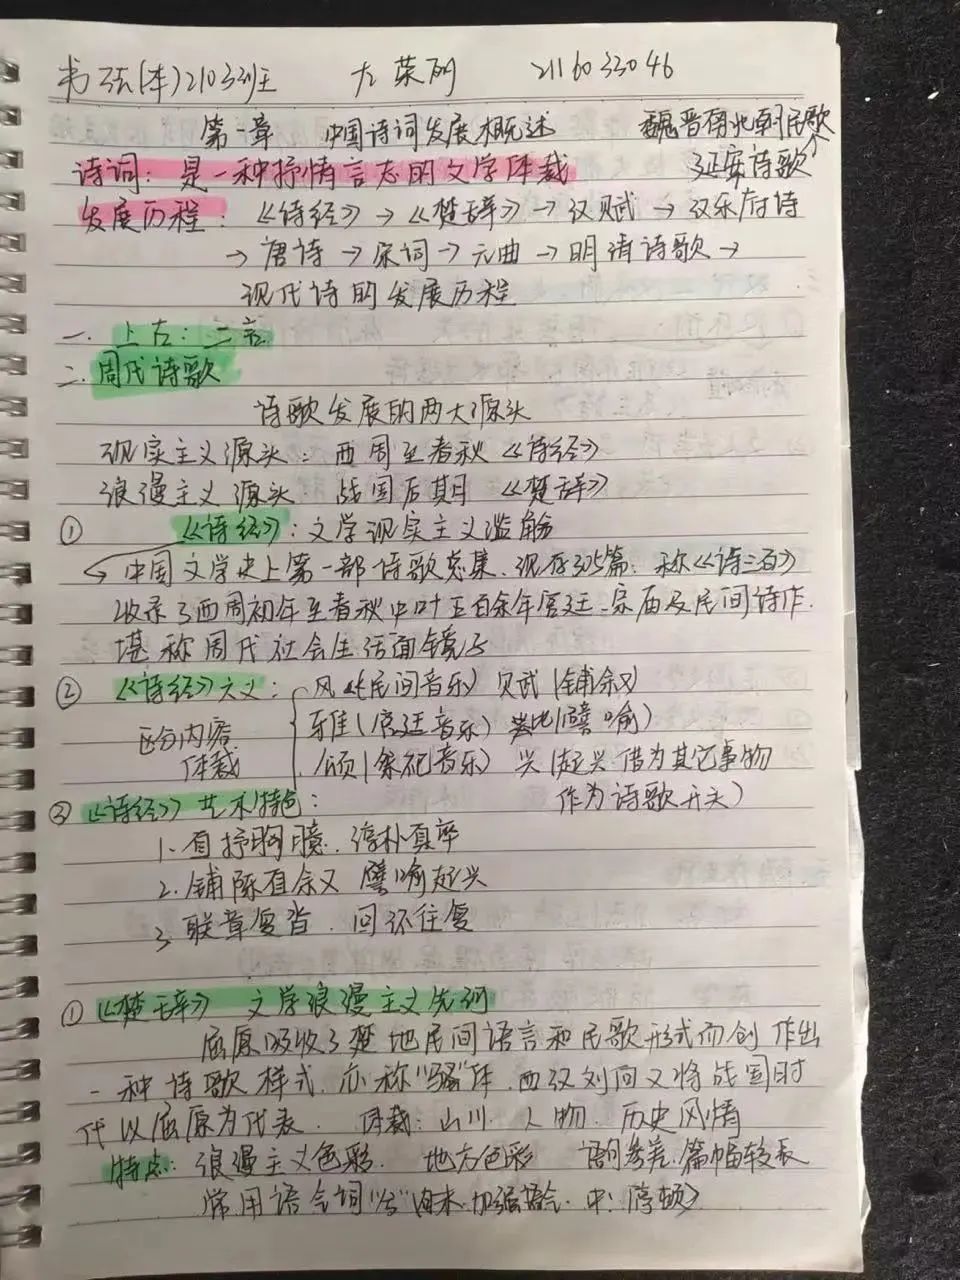 书法(本)2103班 尤荣丽 2116033046
第一章 中国诗词发展概述 魏晋南北朝民歌
诗词：是一种抒情言志的文学体裁 延安诗歌
发展历程：《诗经》→《楚辞》→汉赋→汉乐府诗
→唐诗→宋词→元曲→明清诗歌→
现代诗的发展历程
一.上古：二言
二.周代诗歌
诗歌发展的两大源头
现实主义源头：西周至春秋《诗经》
浪漫主义源头 战国后期《楚辞》
①《诗经》：文学现实主义滥觞
中国文学史上第一部诗歌总集、现存305篇，称《诗三百》
收录了西周初年至春秋中叶五百余年宫廷、宗庙及民间诗作.
堪称周代社会生活面镜子
②《诗经》六义：风(民间音乐) 赋(铺叙)
区分内容 雅(宫廷音乐) 比(譬喻)
体裁 颂(祭祀音乐) 兴(起兴 借为其它事物
③《诗经》艺术特色： 作为诗歌开头)
1.直抒胸臆、淳朴真率
2.铺陈直叙 譬喻起兴
3 联章复沓.回环往复
①《楚辞》 文学浪漫主义先河
屈原吸收了楚地民间语言和民歌形式而创作出
一种诗歌样式.亦称"骚"体.西汉刘向又将战国时
代以屈原为代表. 体裁：山川. 人物. 历史风情
特点：浪漫主义色彩. 地方色彩 语句参差.篇幅较长
常用语气词"兮"(句末.加强语气.中：停顿)